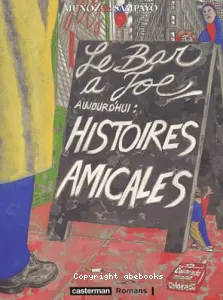 MUÑOZ SAMPAYO
Le Bar
a Joe
AUJOURD'HUI :
HISTOIRES
AMICALES
Copyright abebooks
casterman Romans